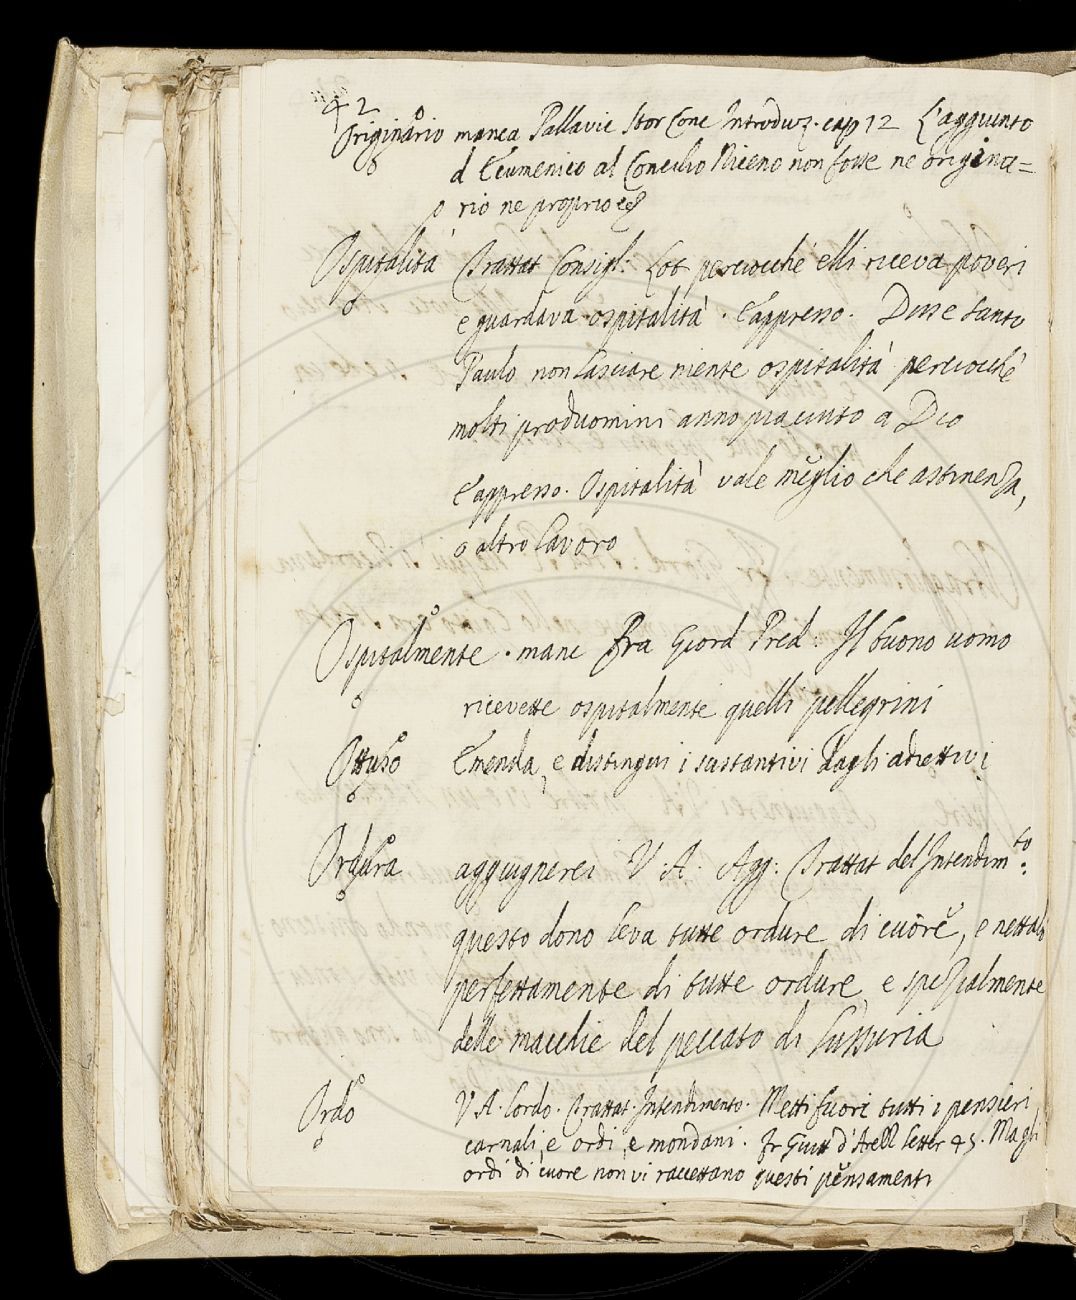 42
Originario manca Pallavic Stor Conc Introduz. cap 12 L'aggiunto
d Ecumenico al Concilio Niceno non fosse ne origina=
rio ne proprio ec
Ospitalità Trattat Consigl: Lot perciocchè elli riceva poveri
e guardava ospitalità. E appresso. Disse santo
Paulo non lasciare niente ospitalità perciocchè
molti produomini anno piaciuto a Dio
E appresso. Ospitalità vale meglio che astinenza,
o altro lavoro
Ospitalmente. manc Fra Giord Pred. Il buono uomo
ricevette ospitalmente quelli pellegrini
Ottuso Emenda, e distingui i sustantivi dagli adiettivi
Ordura aggiugnerei V. A. Agg: Trattat del Intendim.to
questo dono leva tutte ordure di cuore, e nettalo
perfettamente di tutte ordure, e spezialmente
delle macchie del peccato di Lussuria
Ordo V A. lordo. Trattat. Intendimento. Metti fuori tutti i pensieri
carnali, e ordi, e mondani. Fr Guitt d'Arezz letter 45. Magli
ordi di cuore non vi raccettano questi pensamenti